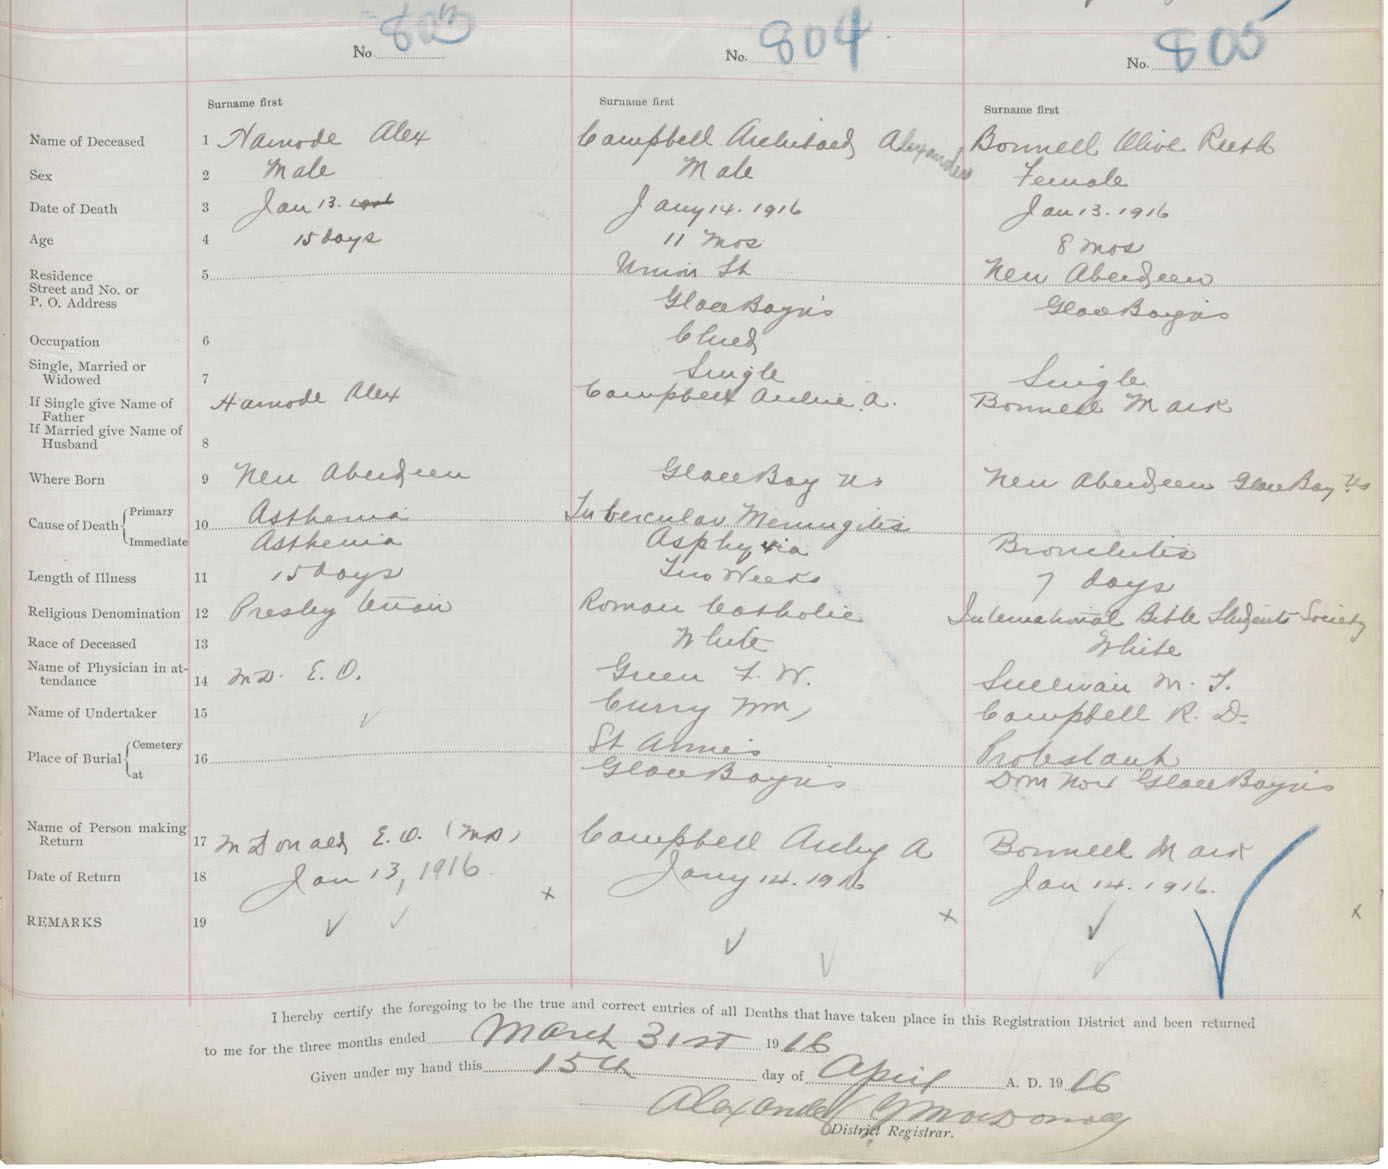 No. 803 No. 804 No. 805
Surname first Surname first Surname first
Name of Deceased 1 Hamode Alex Campbell Archibald Alexander Bonnell Olive Ruth
Sex 2 Male Male Female
Date of Death 3 Jan 13. 1916 Jany 14. 1916 Jan 13. 1916
Age 4 15 days 11 Mos 8 Mos
Residence 5 Union St New Aberdeen
Street and No. or
P. O. Address Glace Bay NS Glace Bay NS
Occupation 6 Child
Single, Married or
Widowed 7 Single Single
If Single give Name of
Father Hamode Alex Campbell Archie A. Bonnell Mark
If Married give Name of
Husband 8
Where Born 9 New Aberdeen Glace Bay NS New Aberdeen Glace Bay NS
Cause of Death Primary 10 Asthenia Tubercular Meningitis
Immediate Asthenia Asphyxia Bronchitis
Length of Illness 11 15 days Two Weeks 7 days
Religious Denomination 12 Presbyterian Roman Catholic International Bible Students Society
Race of Deceased 13 White White
Name of Physician in at-
tendance 14 McD. E. O. Green F. W. Sullivan M. T.
Name of Undertaker 15 Curry Wm, Campbell R. D.
Place of Burial Cemetery 16 St Anne's Protestant
at Glace Bay NS Dom No 1 Glace Bay NS
Name of Person making
Return 17 McDonald E. O. (MD) Campbell Archy A Bonnell Mark
Date of Return 18 Jan 13, 1916. Jany 14. 1916 Jan 14. 1916.
REMARKS 19
I hereby certify the foregoing to be the true and correct entries of all Deaths that have taken place in this Registration District and been returned
to me for the three months ended March 31st 1916
Given under my hand this 15th day of April A. D. 1916
Alexander MacDonald
District Registrar.